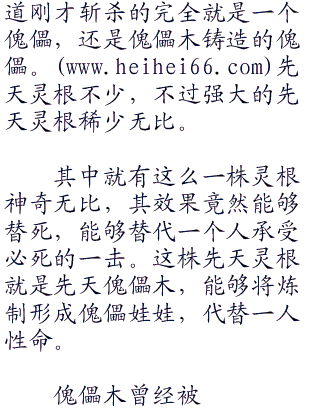 道刚才斩杀的完全就是一个
傀儡，还是傀儡木铸造的傀
儡。(www.heihei66.com)先
天灵根不少，不过强大的先
天灵根稀少无比。
其中就有这么一株灵根
神奇无比，其效果竟然能够
替死，能够替代一个人承受
必死的一击。这株先天灵根
就是先天傀儡木，能够将炼
制形成傀儡娃娃，代替一人
性命。
傀儡木曾经被